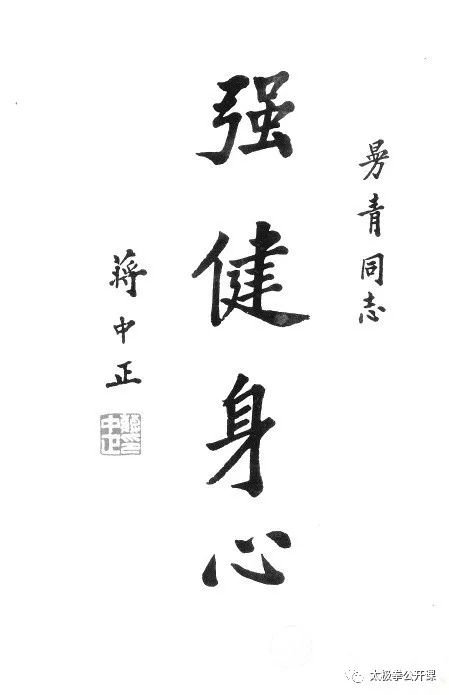 曼青同志
强健身心
蔣中正
太极拳公开课